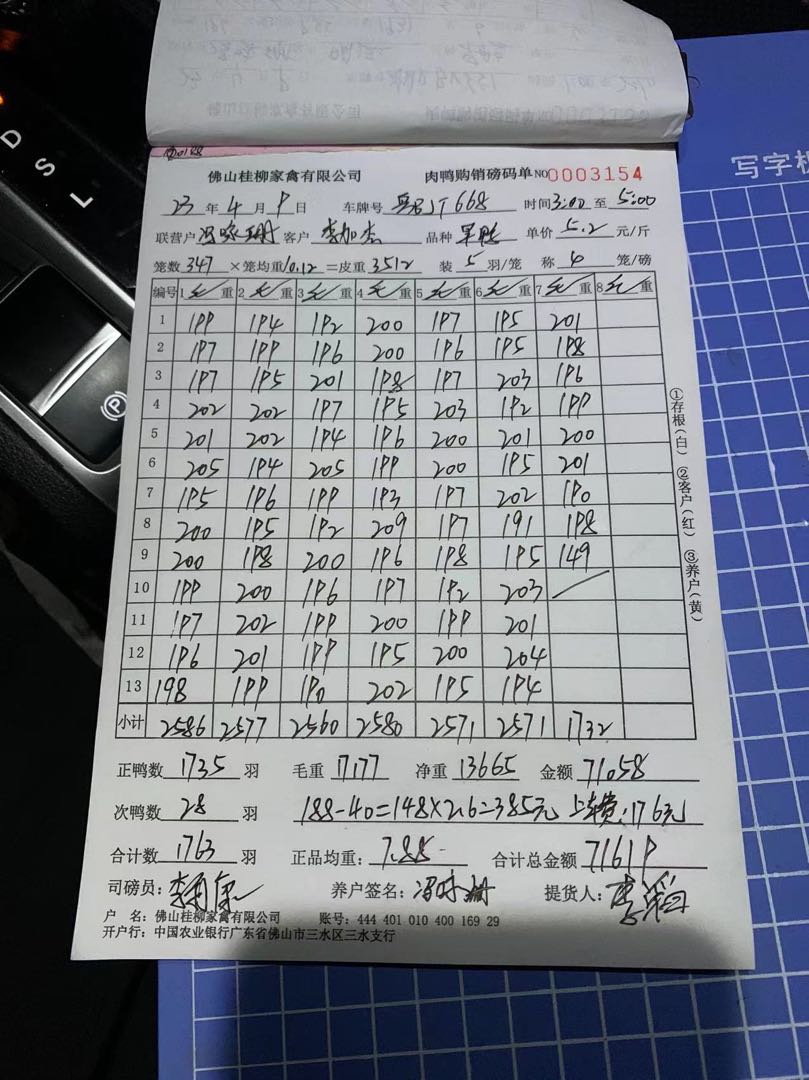 佛山桂柳家禽有限公司 肉鸭购销磅码单 NO0003154
23 年 4 月 9 日 车牌号 668 时间 3:00 至 5:00
联营户 客户 李加杰 品种 单价 5.2 元/斤
笼数 347 ×笼均重 10.12 =皮重 3512 装 5 羽/笼 称 4 笼/磅
编号 1 毛重 2 毛重 3 毛重 4 毛重 5 毛重 6 毛重 7 毛重 8 毛重
1 199 194 192 200 197 195 201
2 197 199 196 200 196 195 198
3 197 195 201 198 197 203 196
4 202 202 197 195 203 192 199
5 201 202 194 196 200 201 200
6 205 194 205 199 200 195 201
7 195 196 199 193 197 202 190
8 200 195 192 209 197 191 198
9 200 198 200 196 198 195 149
10 199 200 196 197 192 203
11 197 202 199 200 199 201
12 196 201 199 195 200 204
13 198 199 190 202 195 194
小计 2586 2577 2560 2580 2571 2571 1732
正鸭数 1735 羽 毛重 17177 净重 13665 金额 71058
次鸭数 28 羽 188-40=148×2.6=385元 上车费:176元
合计数 1763 羽 正品均重: 7.88 合计总金额 71619
司磅员: 养户签名: 提货人:
户 名: 佛山桂柳家禽有限公司 账号: 444 401 010 400 169 29
开户行: 中国农业银行广东省佛山市三水区三水支行
①存根(白) ②客户(红) ③养户(黄)
写字板
D
S
L
P